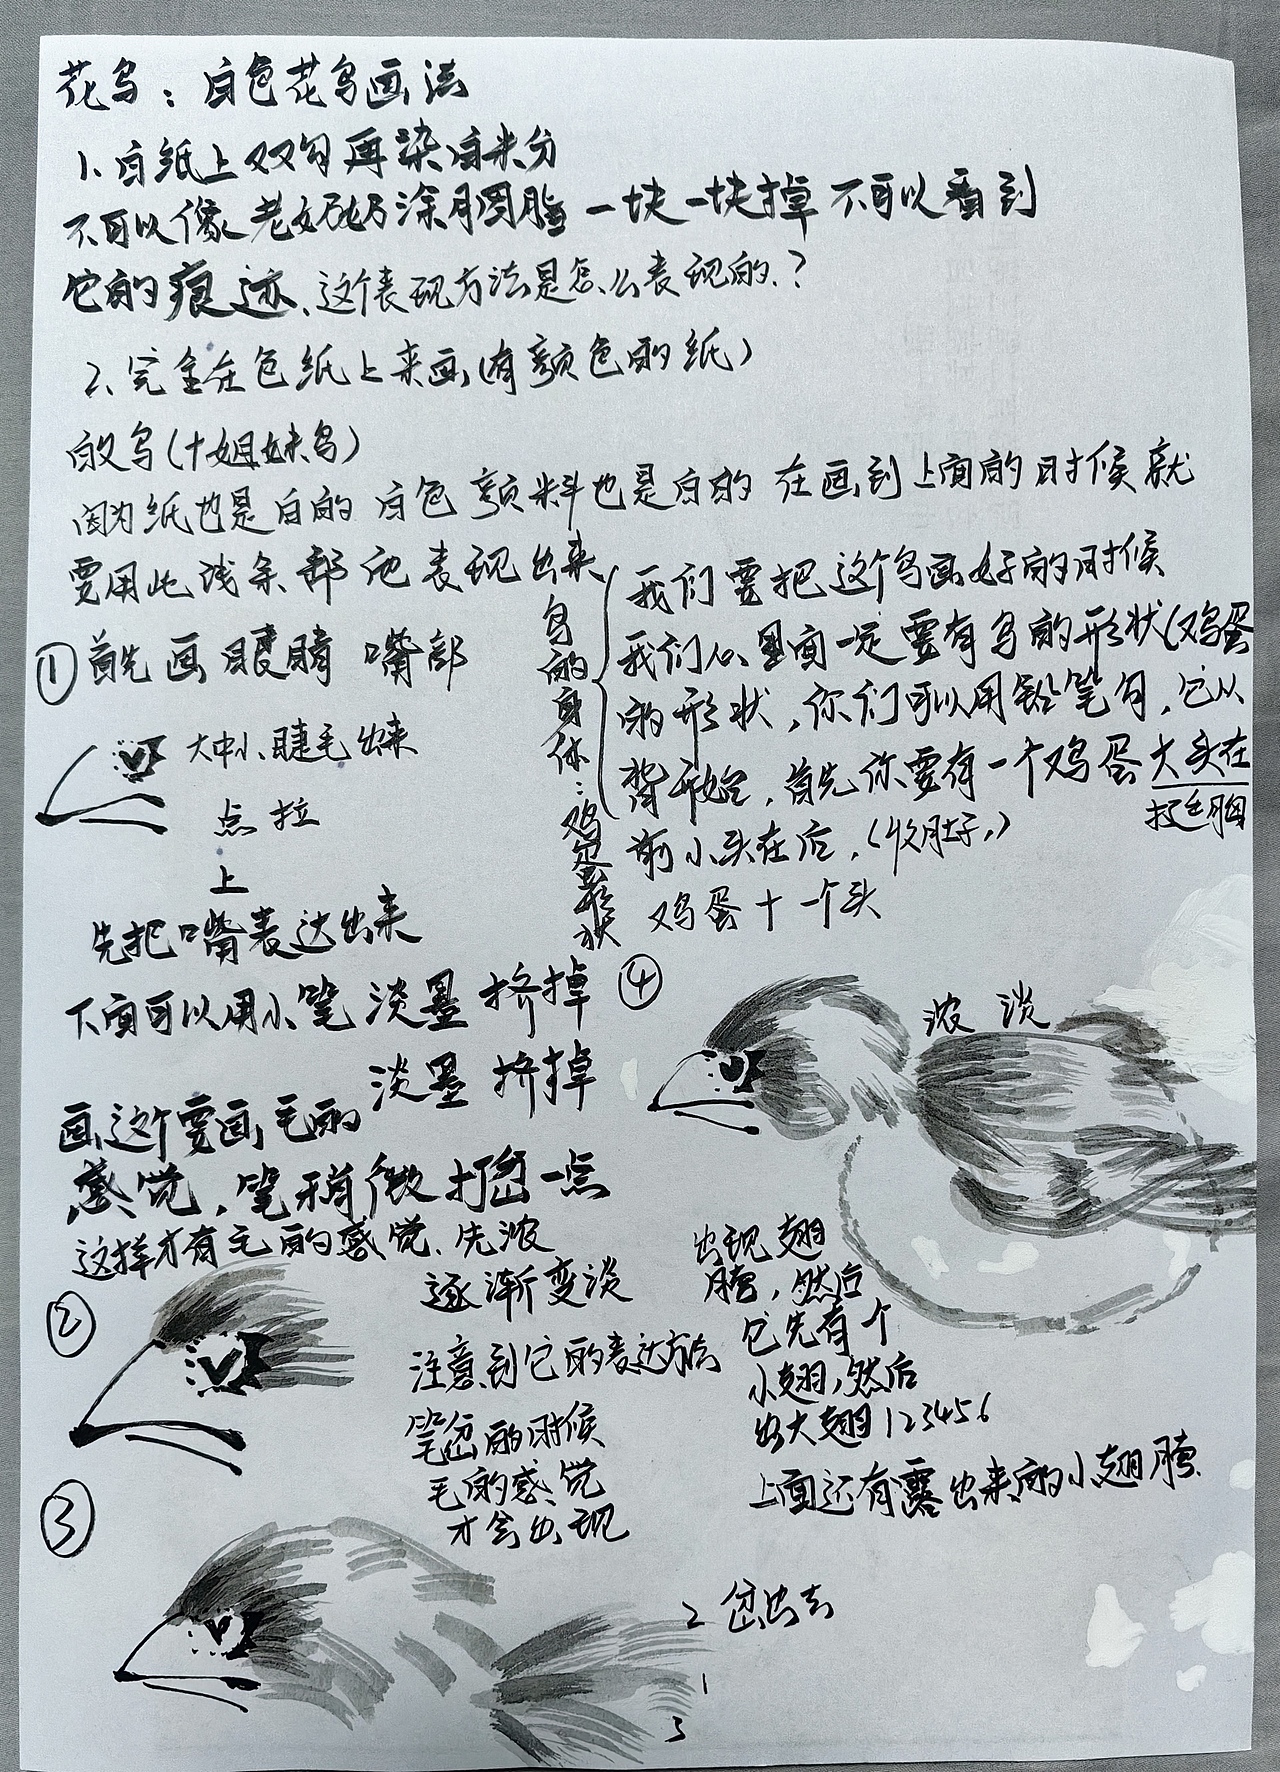 花鸟：白色花鸟画法
1、白纸上双勾再染白米分
不可以像老奶奶涂胭脂一块一块掉不可以看到
它的痕迹、这个表现方法是怎么表现的、？
2、完全在色纸上来画（有颜色的纸）
的鸟（十姐妹鸟）
因为纸也是白的 白色颜料也是白的 在画到上面的时候就
要用此线条都他表现出来
①首先画眼睛 嘴部
大中小、睫毛出来
点 拉
上
先把嘴表达出来
下面可以用小笔淡墨挤掉
淡墨挤掉
画这个要画毛的
感觉，笔稍微打岔一点
这样才有毛的感觉、先浓
逐渐变淡
②
注意到它的表达方法
笔岔的时候
毛的感觉
才会出现
③
鸟的身体：鸡蛋形状
我们要把这个鸟画好的时候
我们从里面一定要有鸟的形状（鸡蛋
的形状，你们可以用铅笔勾，它从
背开始，首先你要有一个鸡蛋大头在
挺胸
前小头在后，（收肚子，）
鸡蛋十一个头
④
浓 淡
出现翅
膀，然后
它先有个
小翅，然后
出大翅123456
上面还有露出来的小翅膀
2 岔出去
1
3